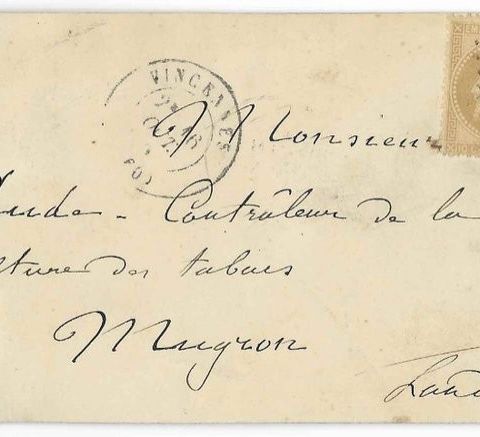 VINCENNES
16
(60)
Monsieur
Contrôleur de la
ture des tabacs
Mugron
Land
EM